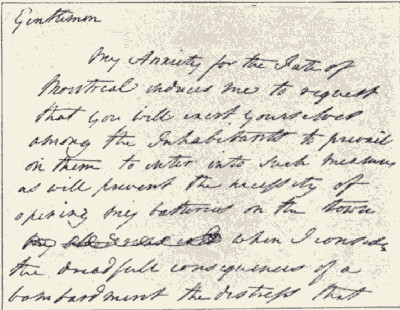 Gentlemen
My Anxiety for the Fate of
Montreal induces me to request
that you will exert yourselves
among the Inhabitants to prevail
on them to enter into such measures
as will prevent the necessity of
opening my batteries on the town
when I consider
the dreadfull consequences of a
bombardment the distress that